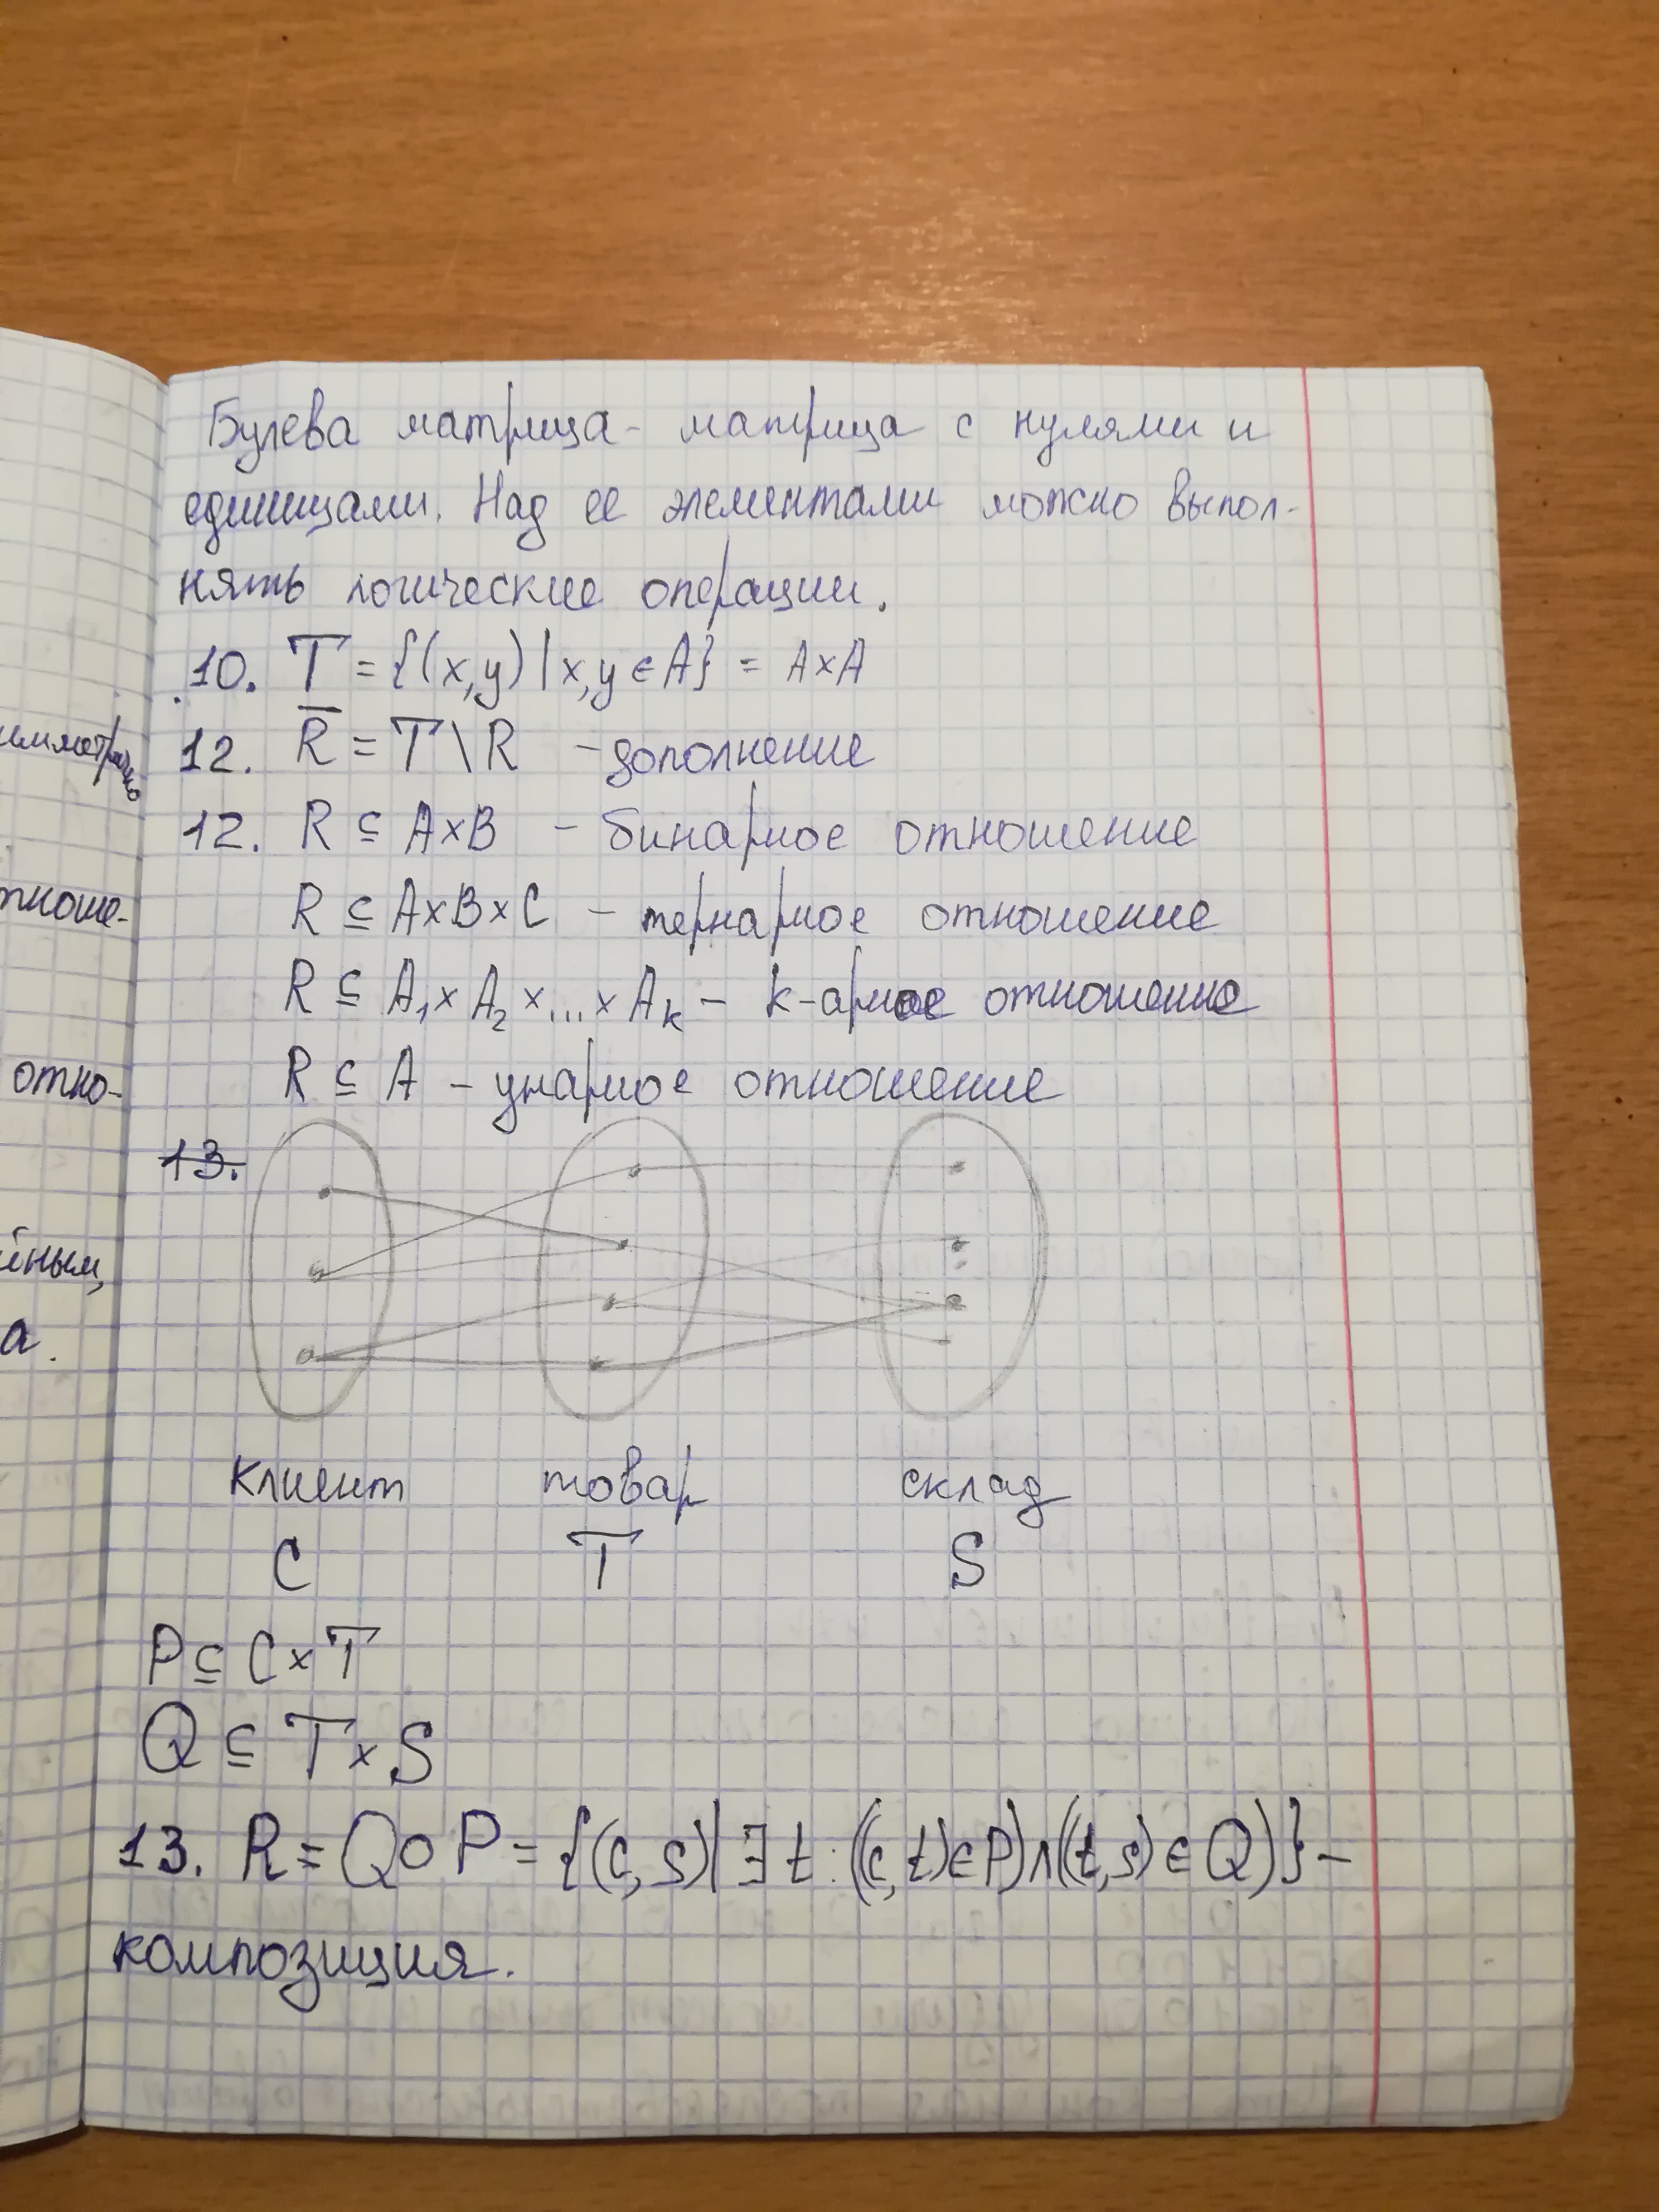 Булева матрица - матрица с нулями и
единицами. Над ее элементами можно выпол-
нять логические операции.
10. T = {(x,y) | x,y ∈ A} = A×A
12. R̅ = T \ R - дополнение
12. R ⊆ A×B - бинарное отношение
R ⊆ A×B×C - тернарное отношение
R ⊆ A₁×A₂×...×Aₖ - k-арное отношение
R ⊆ A - унарное отношение
13.
клиент товар склад
C T S
P ⊆ C×T
Q ⊆ T×S
13. R = Q∘P = {(c,s) | ∃ t : ((c,t) ∈ P) ∧ ((t,s) ∈ Q)} -
композиция.
тноше-
отно-
ёным,
а.